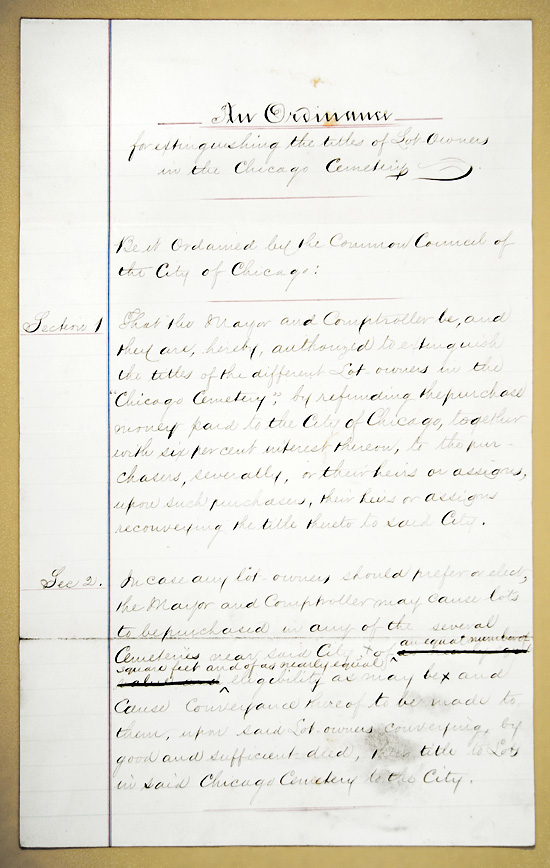 An Ordinance
for extinguishing the titles of Lot-Owners
in the Chicago Cemetery.
Be it Ordained by the Common Council of
the City of Chicago:
Section 1 That the Mayor and Comptroller be, and
they are, hereby, authorized to extinguish
the titles of the different Lot-owners in the
"Chicago Cemetery", by refunding the purchase
money paid to the City of Chicago, together
with six per cent interest thereon, to the pur-
chasers, severally, or their heirs or assigns,
upon such purchasers, their heirs or assigns
reconveying the title thereto to said City.
Sec 2. In case any lot-owners should prefer or elect,
the Mayor and Comptroller may cause lots
to be purchased in any of the several
Cemeteries near said City, & of an equal number of
square feet and of as nearly equal
eligibility as may be & and
Cause Conveyance thereof to be made to
them, upon said Lot-owners conveying, by
good and sufficient deed, their title to Lots
in said Chicago Cemetery to the City.